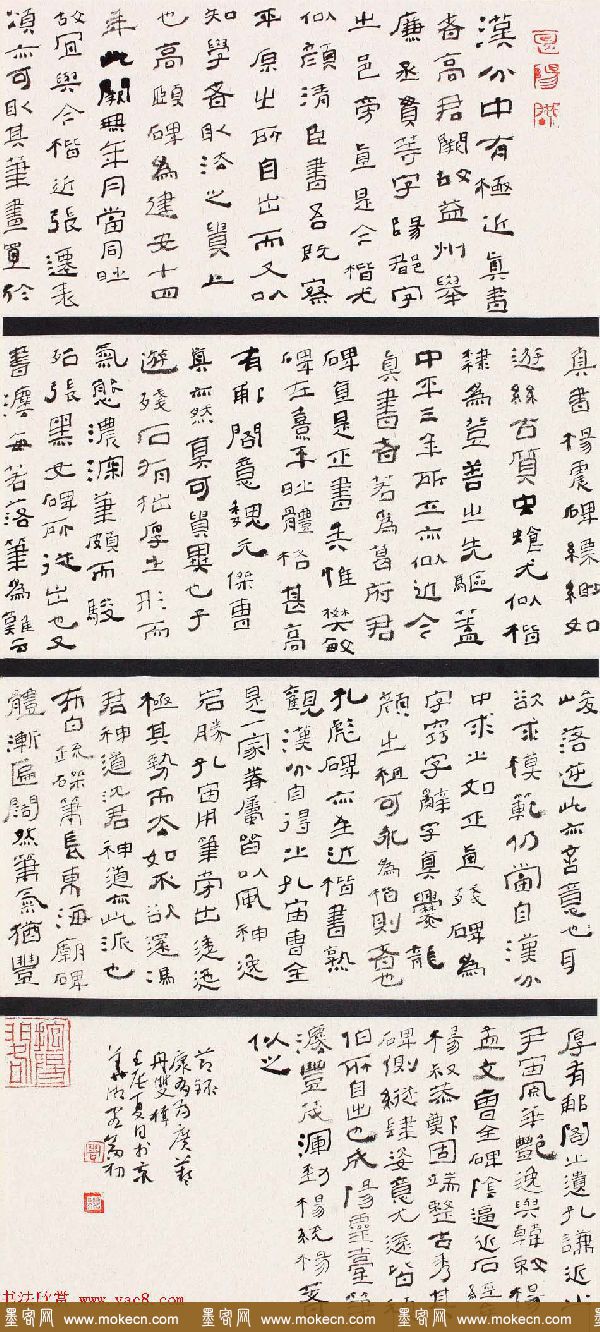 漢分中有極近真書
者高君闕故益州舉
廉丞貫等字陽都字
之邑旁真是今楷尤
似顏清臣書吾既察
平原之所自出而又以
知學者取法之貴上
也高頤碑為建安十四
年此闕無年月當同時
故宜與今楷近張遷表
頌亦可取其筆畫置於
真書楊震碑縹緲如
遊絲古質虫蝕尤似楷
隸為登善之先驅蓋
中平三年所立亦似近今
真書者若為葛府君
碑直是正書矣惟樊敏
碑在熹平時體格甚高
有郙閣意魏元儁曹
真亦然真可貴異也子
遊殘石有拙厚之形而
氣態濃深筆頗而駿
殆張黑女碑所從出也又
書法每苦落筆為難云
峻落逆此亦言意也耳
欲求模範仍當自漢分
中求之如正直殘碑為
字竅字辭字真爨龍
顏之祖可永為楷則者也
孔彪碑亦至近楷書熟
觀漢分自得之孔宙曹全
是一家眷屬皆以風神逸
宕勝孔宙用筆旁出逶迤
極其勢而去如不欲還馮
君神道沈君神道亦此派也
布白疏磔筆長東海廟碑
體漸匾闊然筆氣猶豐
厚有郙閣之遺孔謙近之
尹宙風華艷逸與韓敕楊
孟文曹全碑陰逼近石經
楊叔恭鄭固端整古秀其
碑側縱肆姿意尤遠皆程
伯所自出也成陽靈臺筆
法豐茂渾勁楊統楊著
似之
節錄
康有為廣藝
舟雙楫
壬辰夏日於京
書法欣賞 www.yac8.com
墨客网 www.mokecn.com 墨客网 www.mokecn.com 墨客网 www.mokecn.com